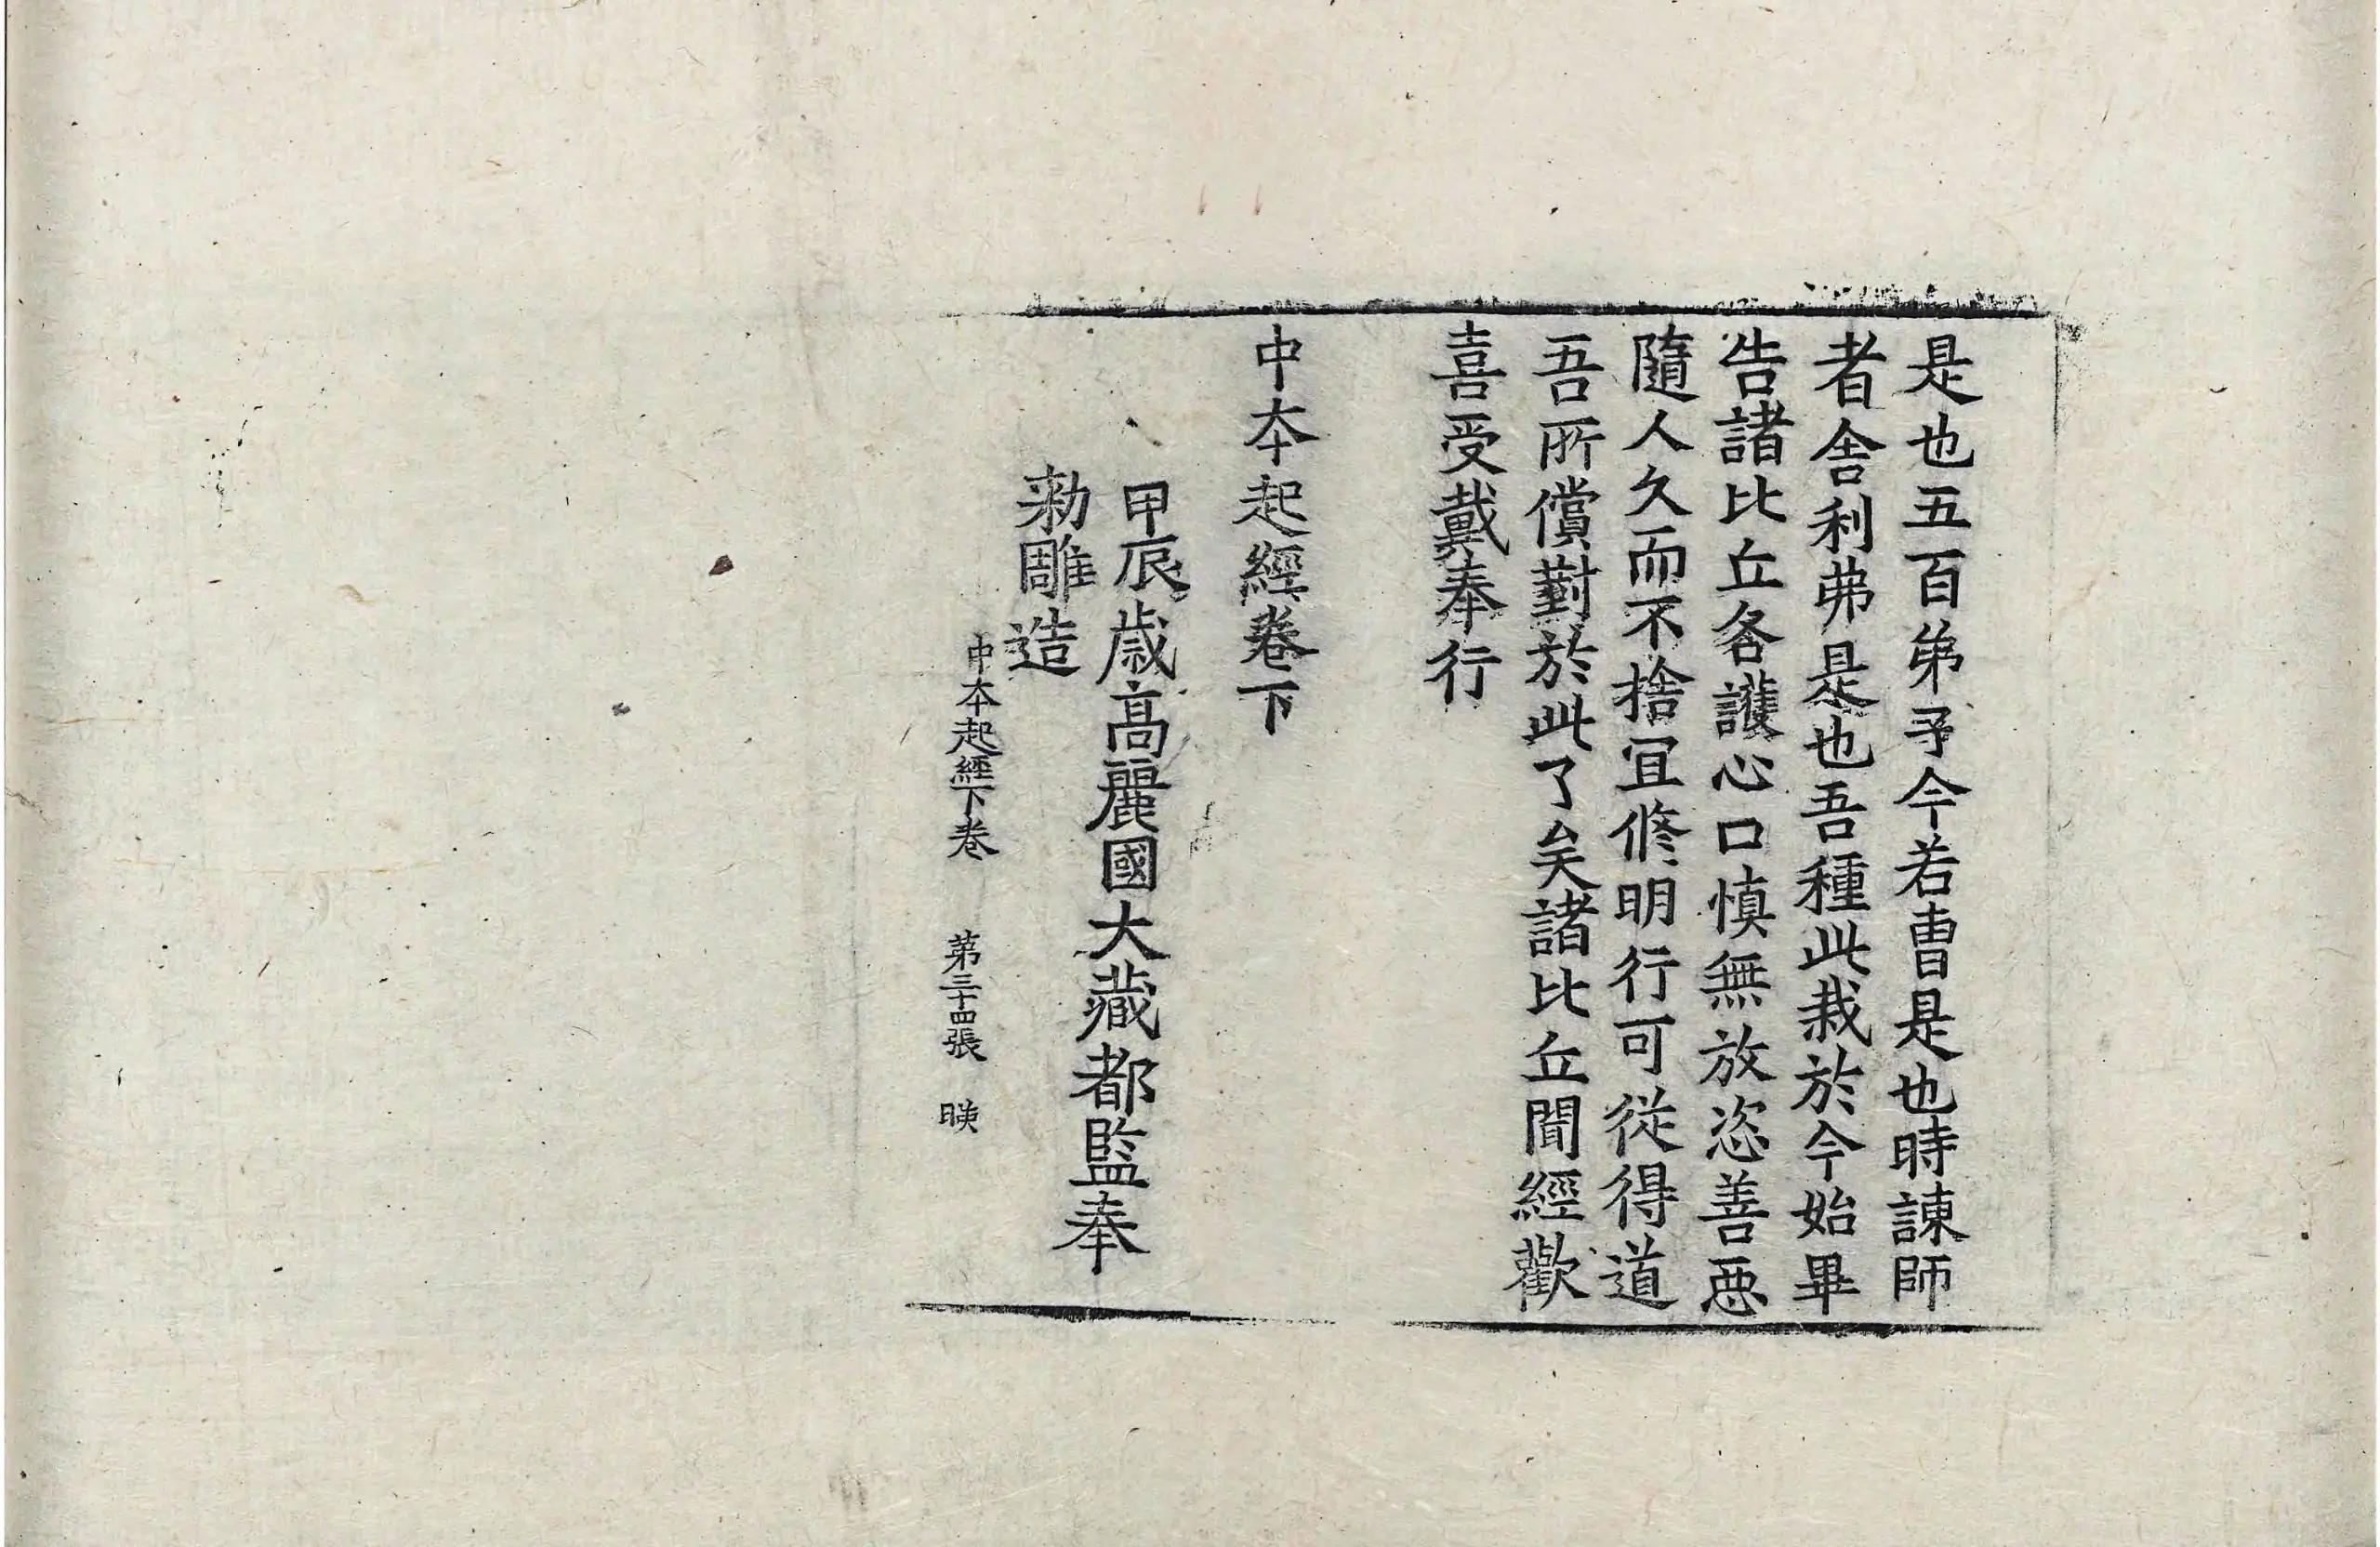 是也五百弟子今若曹是也時諫師
者舍利弗是也吾種此栽於今始畢
告諸比丘各護心口慎無放恣善惡
隨人久而不捨宜脩明行可從得道
吾所償對於此了矣諸比丘聞經歡
喜受戴奉行
中本起經卷下
甲辰歲高麗國大藏都監奉
勑雕造
中本起經下卷 第三十四張 映